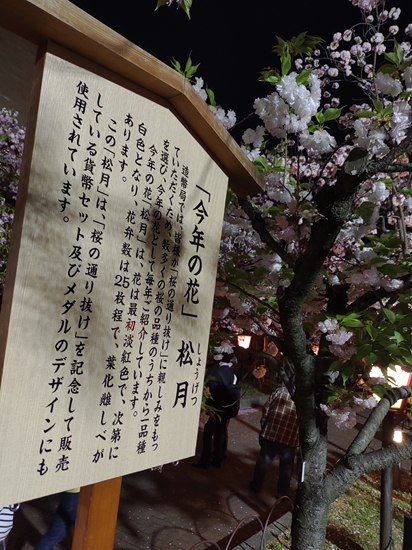 「今年の花」 松月
しょうげつ
造幣局では、皆様が「桜の通り抜け」に親しみをもっ
ていただくため、数多くの桜の品種のうちから一品種
を選び、今年の花として毎年ご紹介しています。
今年の花「松月」は、花は最初淡紅色で、次第に
白色となり、花弁数は25枚程で、葉化雌しべが
あります。
この「松月」は、「桜の通り抜け」を記念して販売
している貨幣セット及びメダルのデザインにも
使用されています。